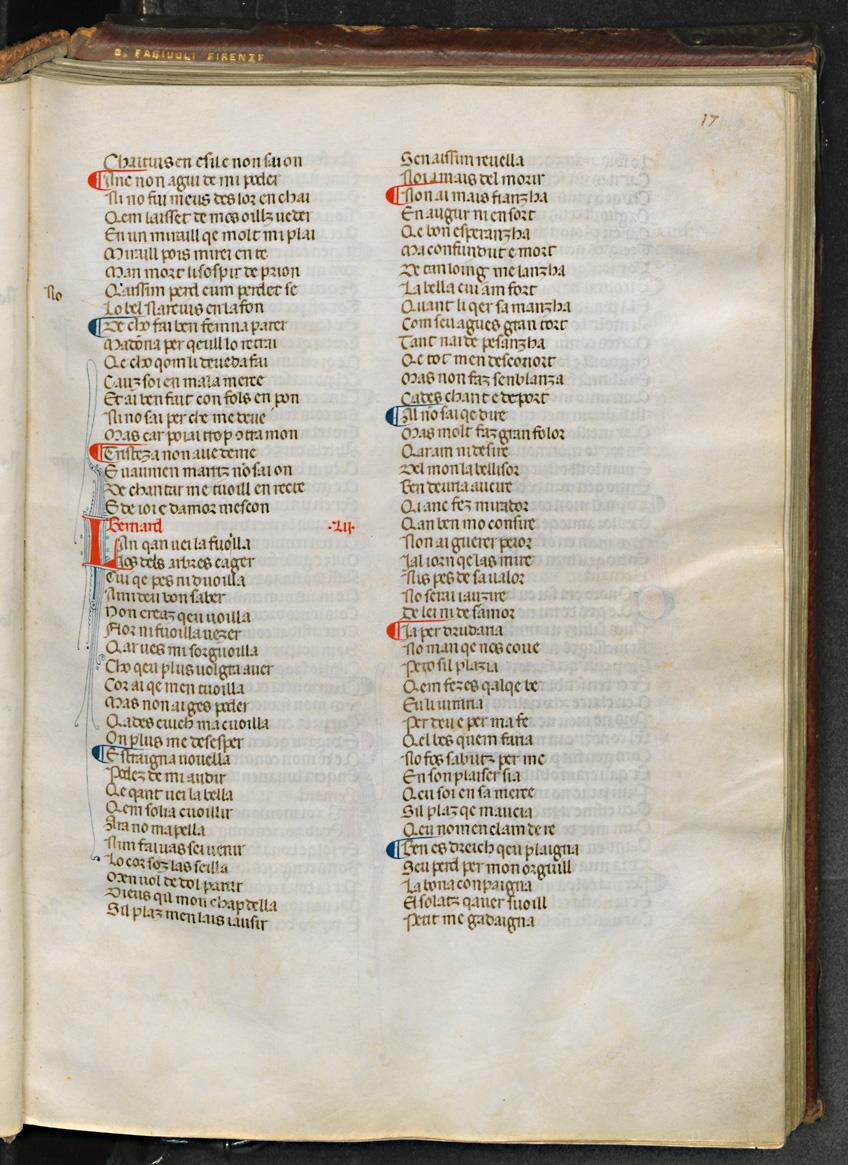 G. FAGIUOLI FIRENZE
17
Chaitius en esil e non sai on
Anc non agui de mi poder
Ni no fui meus des lor en chai
Qem laisset de mos oillz veder
En un miraill qe molt mi plai
Miraill pois mirei en te
Man mort li sospir de prion
Qaissim perd cum perdet se
No
Lo bel Narcius en la fon
De cho fai ben femna parer
Madona per qeuill lo retrai
Qe cho qom li deveda fai
Cauz soi en mala merce
Et ai ben fait con fols en pon
Ni no sai per che me deve
Mas car poiai trop contra mon
Tristeza non ave de me
Qeu aumen maritz no sai on
De chantar me tuoill en recre
E de ioi e damor mescon
Bernard
.LII.
Lan qan vei la fuoilla
Ios dels arbres cager
Cui qe pes ni duoilla
A mi deu bon saber
Non creaz qeu voilla
Flor ni fuoilla vezer
Qar ves mi sorguoilla
Cho qeu plus volgra aver
Cor ai qe men tuoilla
Mas non ai ges poder
Qades cuich ma cuoilla
On plus me desesper
Estraigna novella
Podez de mi audir
Qe qant vei la bella
Qem solia cuoillir
Ara no mapella
Nim fai vas sei venir
Lo cor soz las seilla
Men vol de dol partir
Dieus qil mon chapdella
Sil plaz men lais iausir
Sen aissim revella
Noi a mais del morir
Non ai mais fianzha
En augur ni en sort
Qe bon esperanzha
Ma confundut e mort
De tan loing me lanzha
La bella cui am fort
Quant li qer sa manzha
Com seu agues gran tort
Tant nai de pesanzha
Qe tot men desconort
Mas non faz senblanza
Cades chant e deport
Al no sai qe dire
Mas molt faz gran folor
Qar am ni desire
Del mon la bellisor
Ben deuria aucire
Qi anc fez mirador
Qan ben mo consire
Non ai guerer peior
Ia l iorn qe las mire
Nis pes de sa valor
No serai iauzire
De lei ni de samor
Ia per drudaria
No man qe nos cove
Pero sil plazia
Qem fezes qalqe be
Eu li iuraria
Per deu e per ma fe
Qel bes quem faria
No fos sabutz per me
En son plaiser sia
Qeu soi en sa merce
Sil plaz qe maucia
Qeu no men clam de re
Ben es dreich qeu plaigna
Seu perd per mon orguill
La bona conpaigna
El solatz qaver suoill
Petit me gadaigna